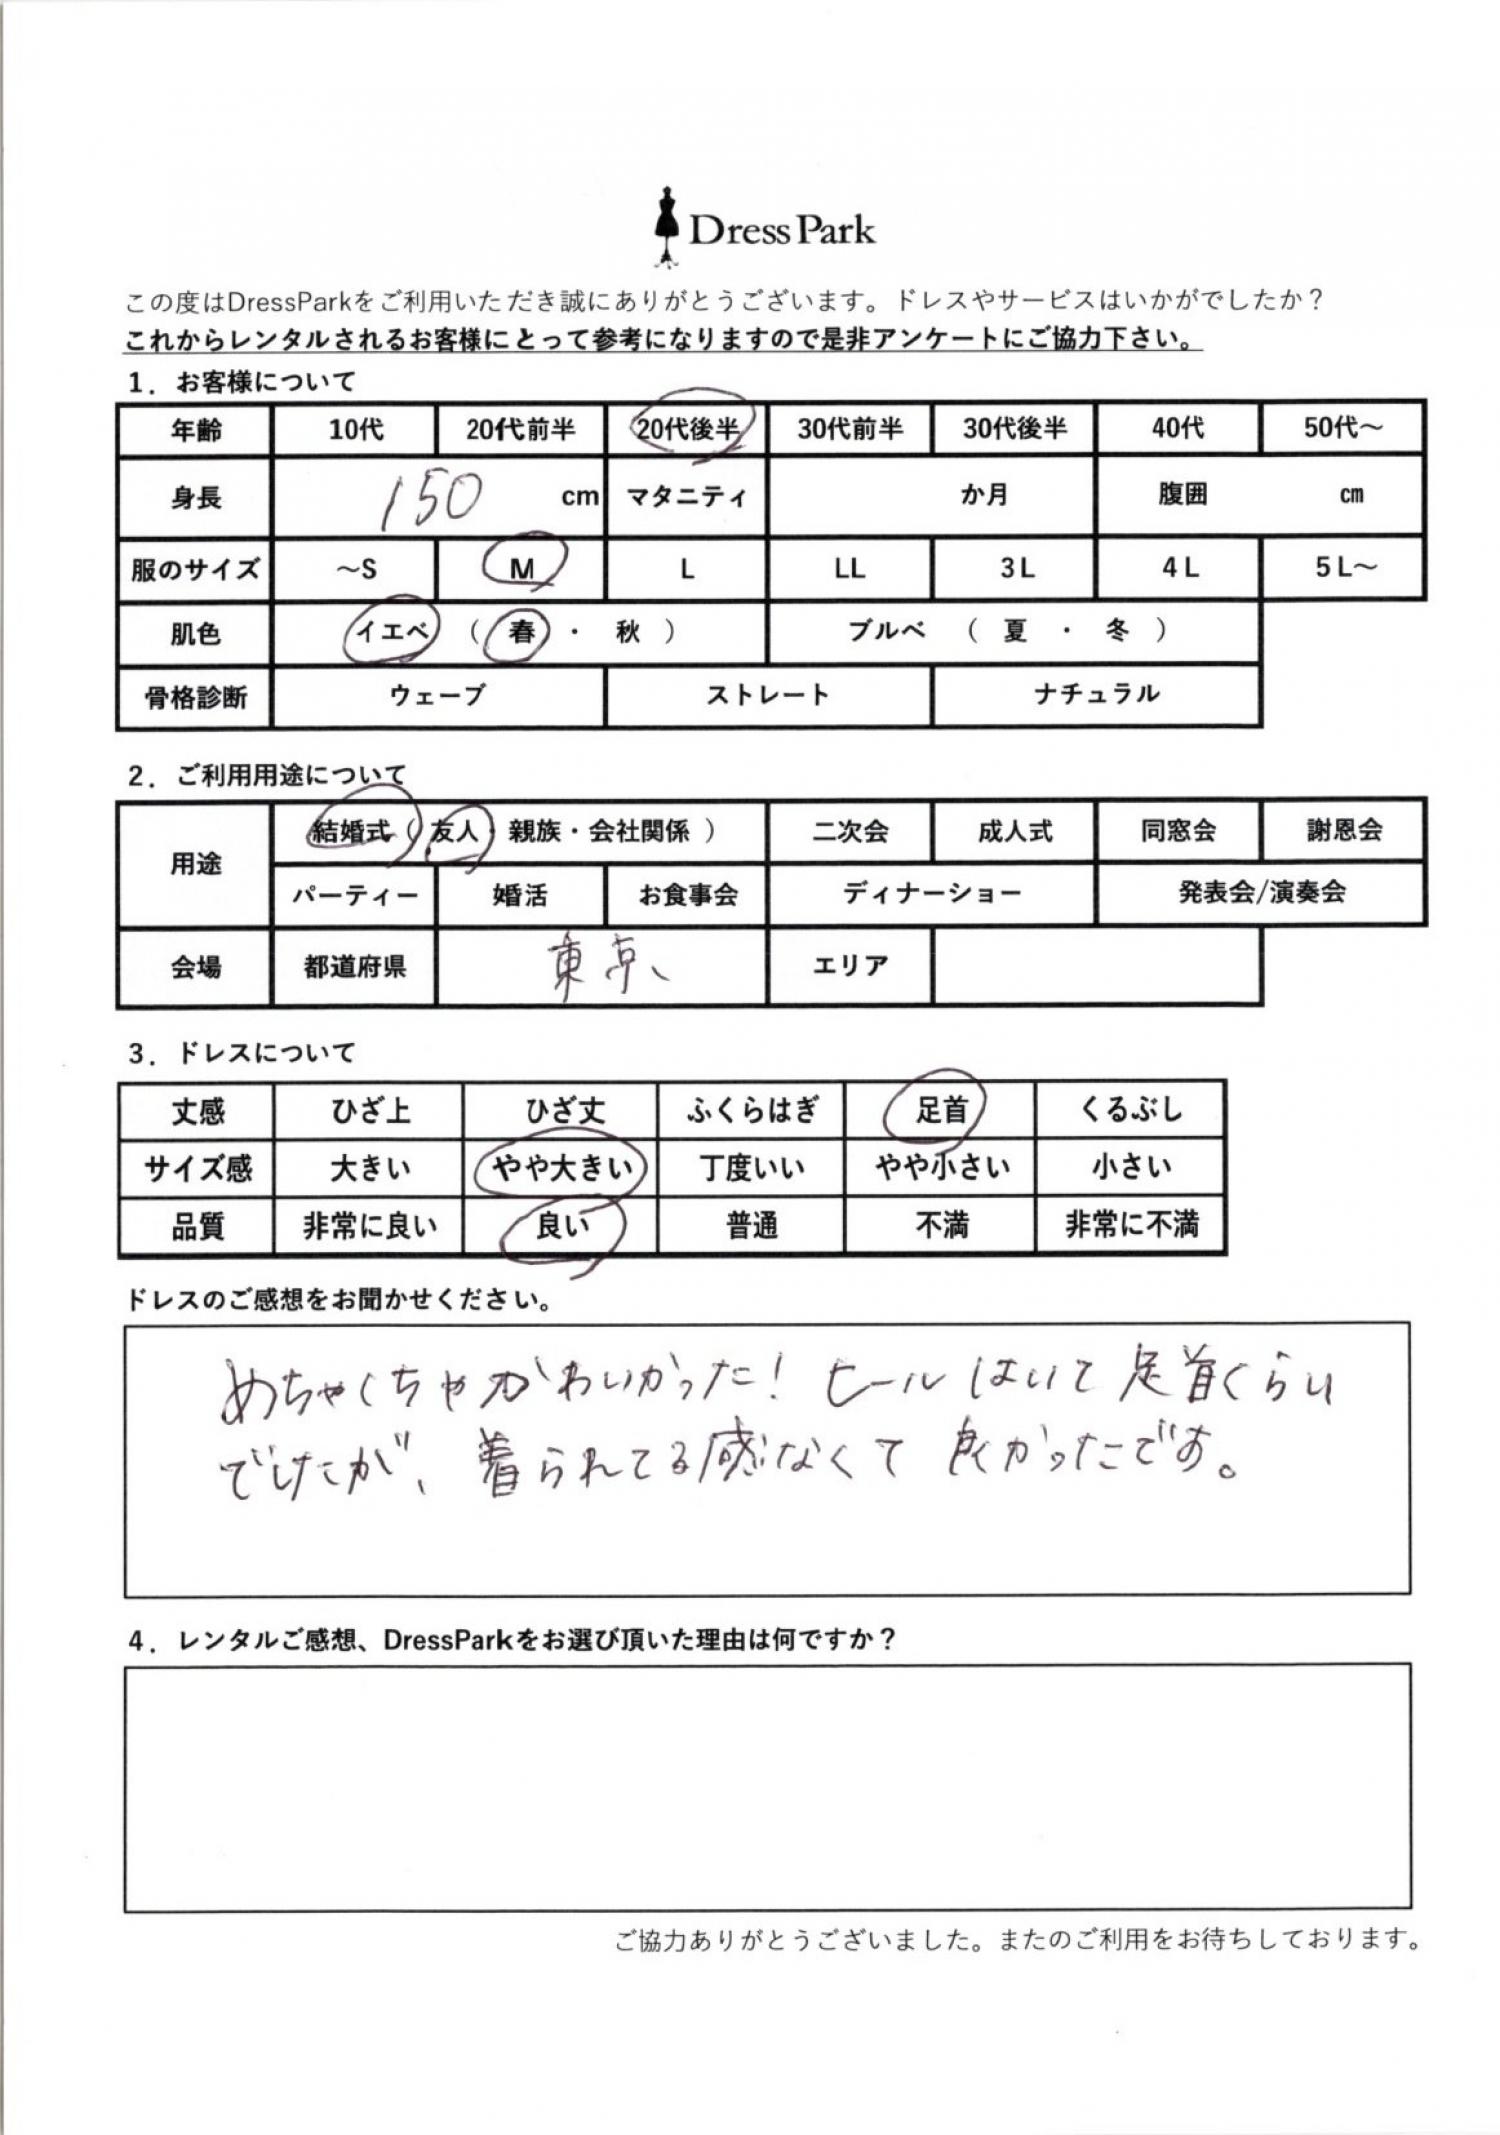 Dress Park
この度はDressParkをご利用いただき誠にありがとうございます。ドレスやサービスはいかがでしたか？
これからレンタルされるお客様にとって参考になりますので是非アンケートにご協力下さい。
1．お客様について
年齢 10代 20代前半 20代後半 30代前半 30代後半 40代 50代～
身長 150 cm マタニティ か月 腹囲 ㎝
服のサイズ ～S M L LL 3L 4L 5L～
肌色 イエベ （ 春 ・ 秋 ） ブルベ （ 夏 ・ 冬 ）
骨格診断 ウェーブ ストレート ナチュラル
2．ご利用用途について
用途 結婚式（ 友人・親族・会社関係 ） 二次会 成人式 同窓会 謝恩会
パーティー 婚活 お食事会 ディナーショー 発表会/演奏会
会場 都道府県 東京 エリア
3．ドレスについて
丈感 ひざ上 ひざ丈 ふくらはぎ 足首 くるぶし
サイズ感 大きい やや大きい 丁度いい やや小さい 小さい
品質 非常に良い 良い 普通 不満 非常に不満
ドレスのご感想をお聞かせください。
めちゃくちゃかわいかった！ヒールはいて足首くらい
でしたが、着られてる感なくて良かったです。
4．レンタルご感想、DressParkをお選び頂いた理由は何ですか？
ご協力ありがとうございました。またのご利用をお待ちしております。